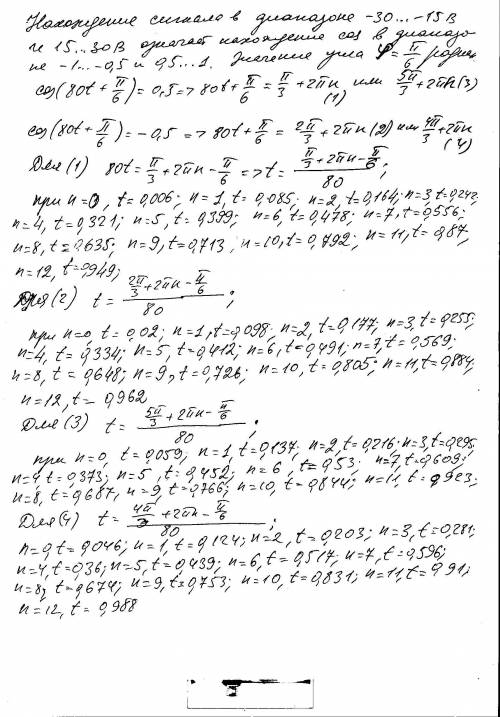 Нахождение сигнала в диапазоне -30...-15 В
и 15...30 В означает нахождение cos в диапазо-
не -1...-0,5 и 0,5...1. Значение угла φ = π/6 радиан
cos(80t + π/6) = 0,5 => 80t + π/6 = π/3 + 2πn (1) или 5π/3 + 2πn (3)
cos(80t + π/6) = -0,5 => 80t + π/6 = 2π/3 + 2πn (2) или 4π/3 + 2πn (4)
Для (1) 80t = π/3 + 2πn - π/6 => t = (π/3 + 2πn - π/6)/80 ;
при n=0, t=0,006; n=1, t=0,085; n=2, t=0,164; n=3, t=0,242,
n=4, t=0,321; n=5, t=0,399; n=6, t=0,478; n=7, t=0,556;
n=8, t=0,635; n=9, t=0,713; n=10, t=0,792; n=11, t=0,87,
n=12, t=0,949;
Для (2) t = (2π/3 + 2πn - π/6)/80 ;
при n=0, t=0,02; n=1, t=0,098; n=2, t=0,177; n=3, t=0,255;
n=4, t=0,334; n=5, t=0,412; n=6, t=0,491; n=7, t=0,569;
n=8, t=0,648; n=9, t=0,726; n=10, t=0,805; n=11, t=0,884;
n=12, t=0,962
Для (3) t = (5π/3 + 2πn - π/6)/80 ;
при n=0, t=0,059; n=1, t=0,137; n=2, t=0,216; n=3, t=0,295
n=4, t=0,373; n=5, t=0,452; n=6, t=0,53; n=7, t=0,609;
n=8, t=0,687, n=9, t=0,766; n=10, t=0,844; n=11, t=0,923;
Для (4) t = (4π/3 + 2πn - π/6)/80 ;
n=0, t=0,046; n=1, t=0,124; n=2, t=0,203; n=3, t=0,281;
n=4, t=0,36; n=5, t=0,439; n=6, t=0,517; n=7, t=0,596;
n=8, t=0,674; n=9, t=0,753; n=10, t=0,831; n=11, t=0,91;
n=12, t=0,988